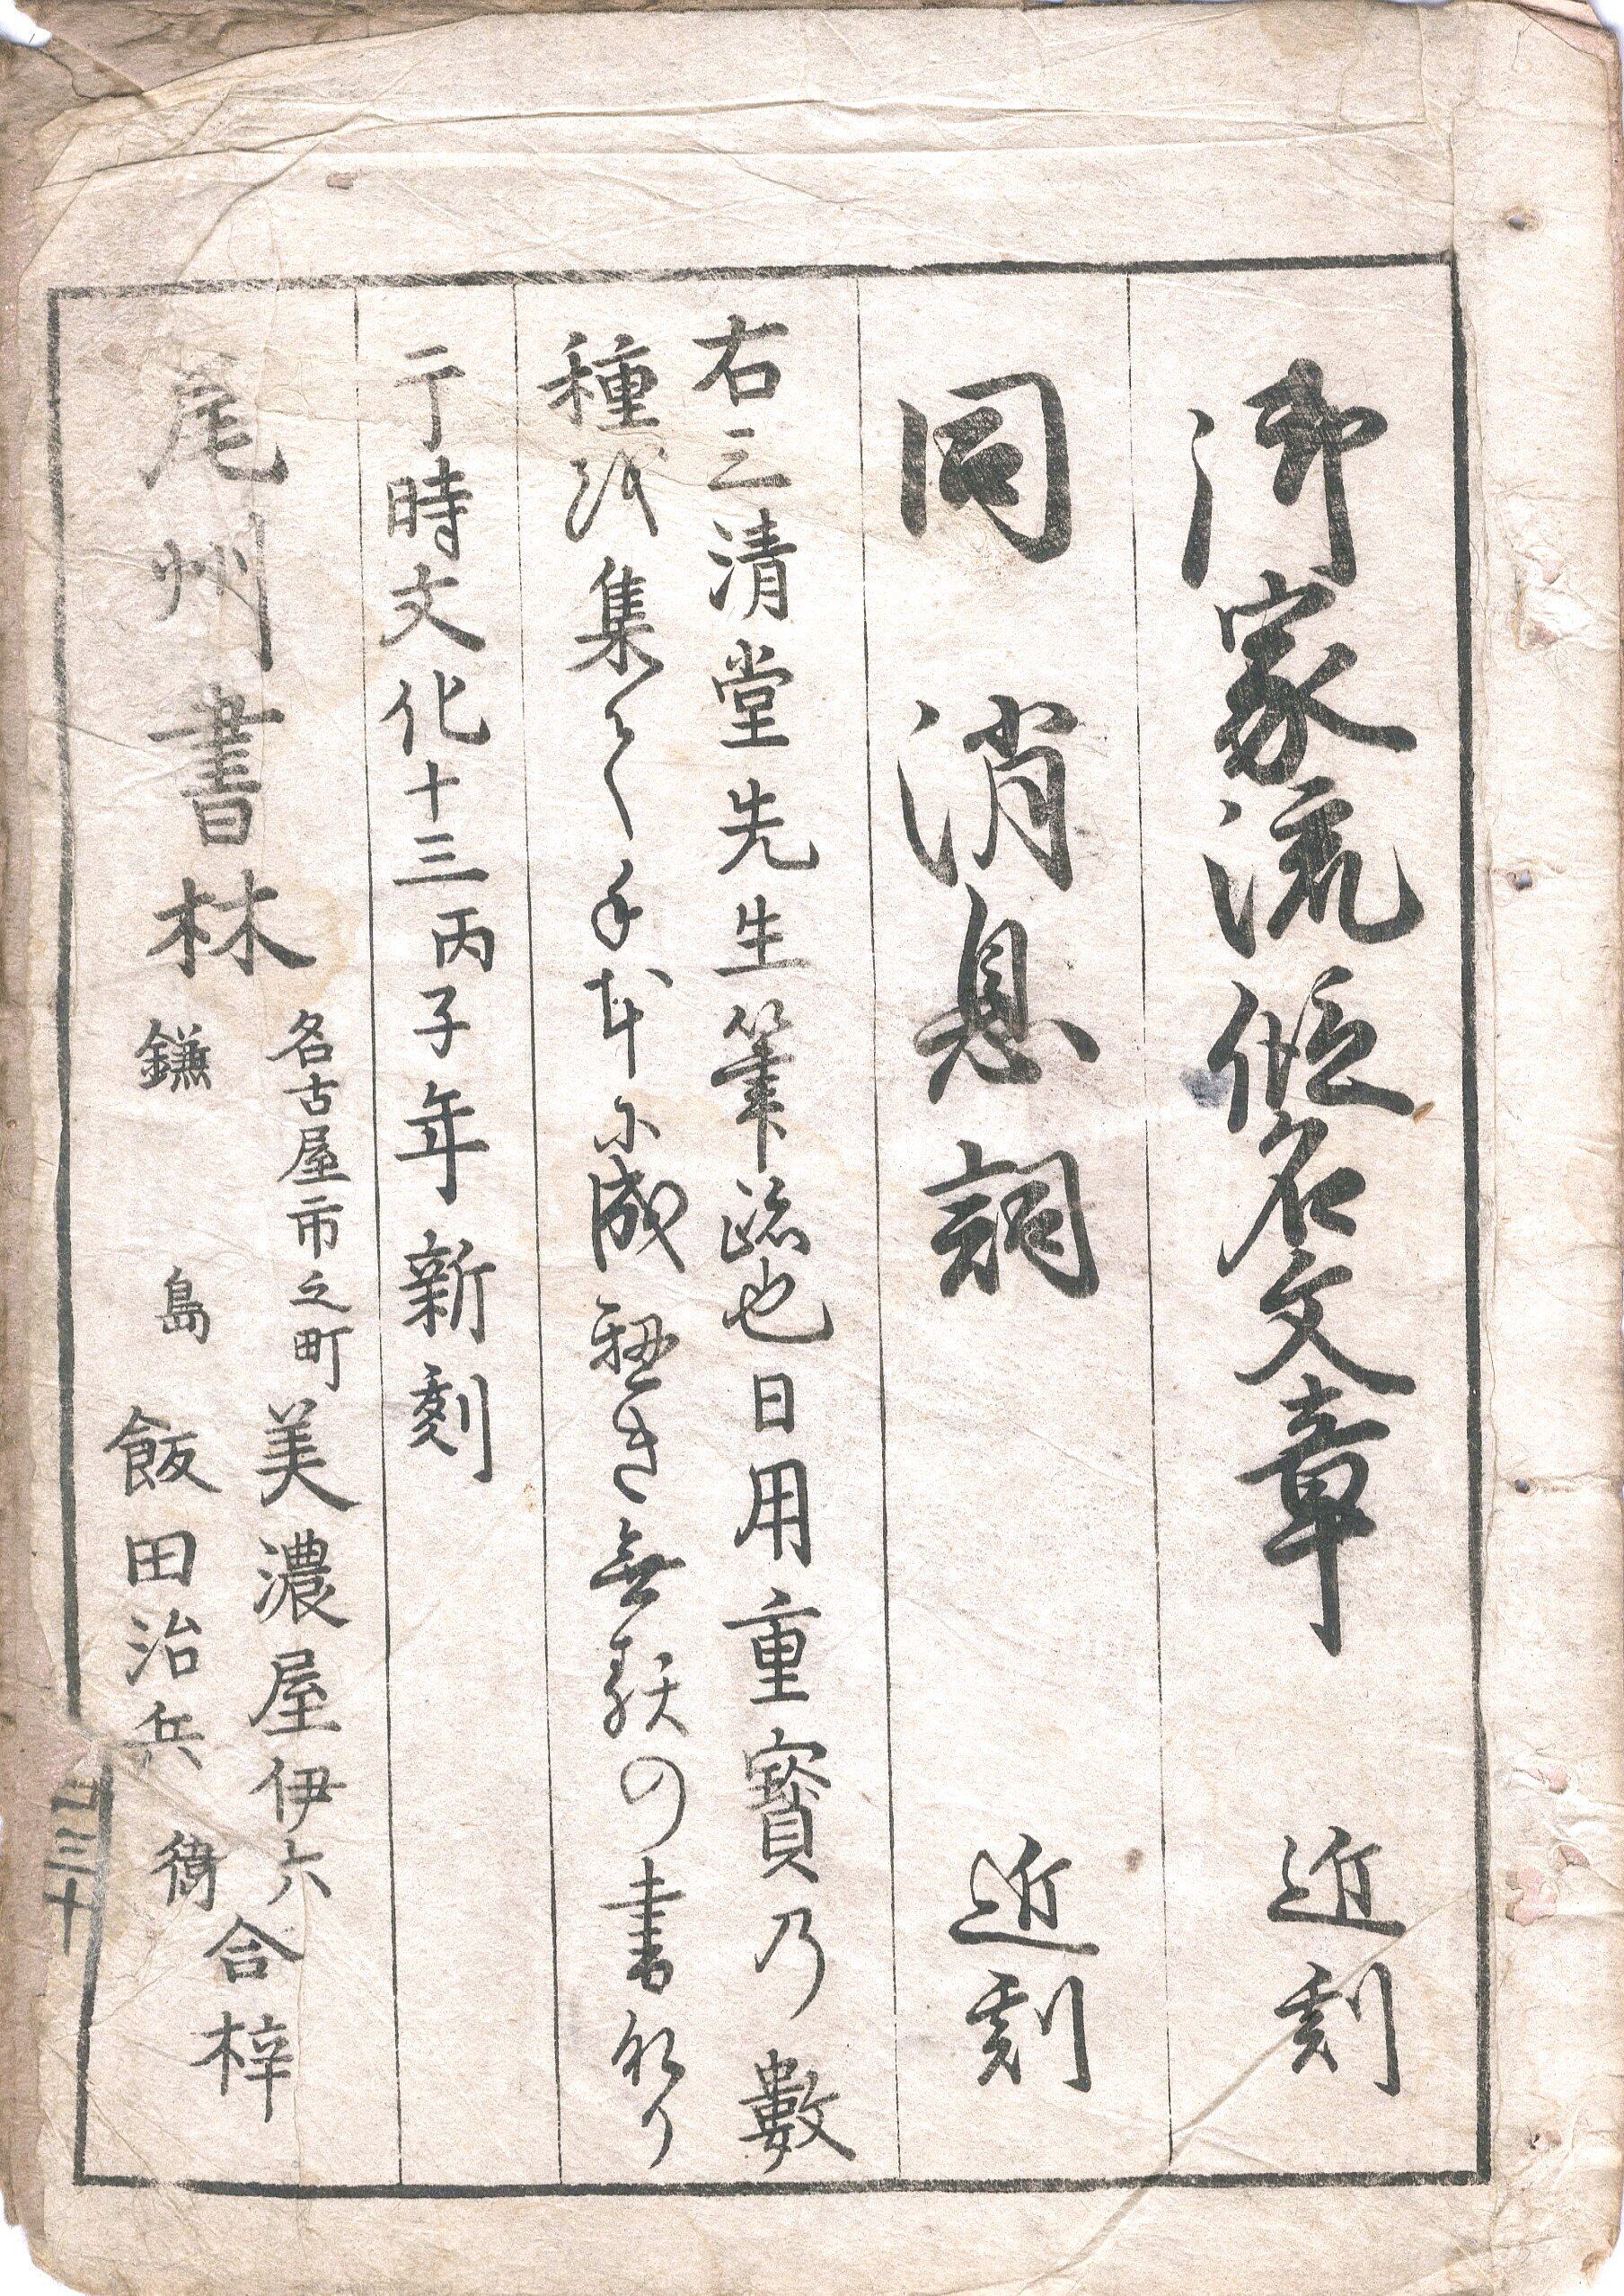 御家流仮名文章 近刻
同 消息詞 近刻
右三清堂先生筆跡也日用重寳乃數
種越集てくる手本尓成難き無類の書なり
于時文化十三丙子年新刻
尾州書林
名古屋市之町 美濃屋伊六
鎌島 飯田治兵衛
合梓